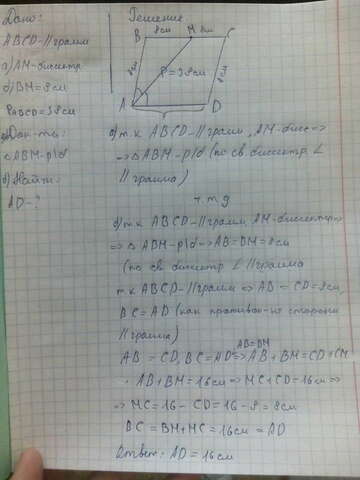 Дано:
Решение
ABCD-llграмм
а) AM-биссктр
б) BM=8см
PABCD=38см
а) Док-ть:
△ABM-р|б
б) Найти:
AD-?
B 8см M 8см C
8см P=38см 8см
A D
а) т.к ABCD-llграмм, AM-бисс=>
=> △ABM-р|б (по св. биссктр ∠
llграмма)
ч.т.д
б) т.к ABCD-llграмм, AM-биссектр=>
=> △ABM-р|б=>AB=BM=8см
(по св. биссктр ∠ llграмма
т.к ABCD-llграмм => AB = CD=8см,
BC=AD (как противоп-ые стороны
llграмма)
AB=BM
AB = CD, BC=AD=>AB+BM=CD+CM
AB+BM=16см=>MC+CD=16см=>
=> MC=16-CD=16-8=8см
BC=BM+MC=16см=AD
Ответ: AD=16см